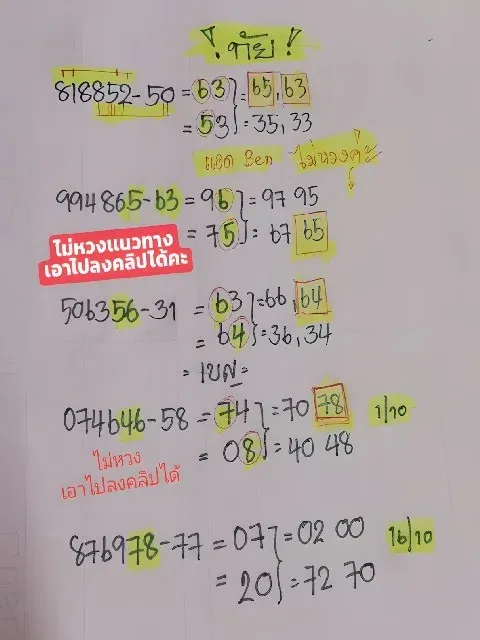 ! ทัย !
818852-50 = 63 } = 65, 63
= 53 } = 35, 33
แอด Ben ไม่หวงค่ะ
994865-63 = 96 } = 97 95
= 75 } = 67 65
ไม่หวงแนวทาง
เอาไปลงคลิปได้คะ
506356-31 = 63 } = 66, 64
= 64 } = 36, 34
= เบิ้ล =
074646-58 = 74 } = 70 78 1/10
= 08 } = 40 48
ไม่หวง
เอาไปลงคลิปได้
876978-77 = 07 } = 02 00 16/10
= 20 } = 72 70